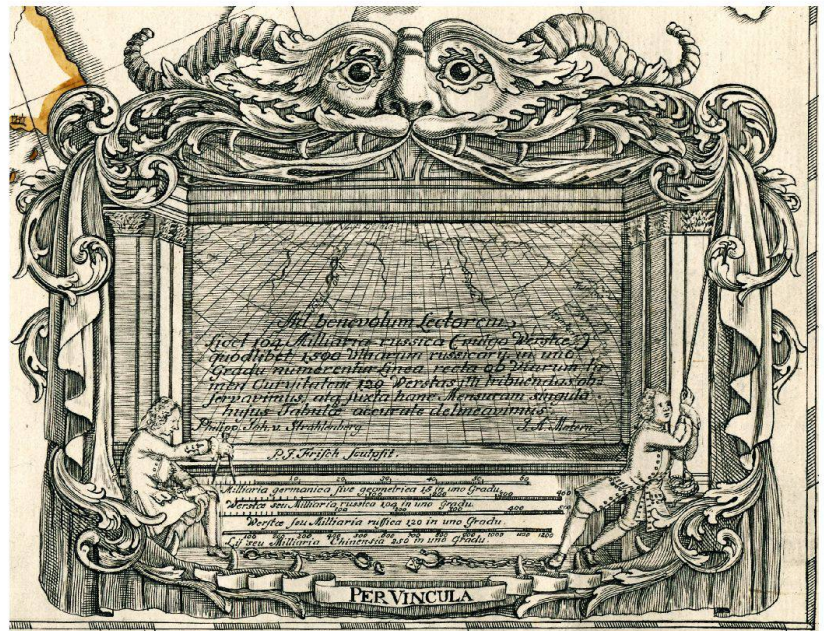 Ad benevolum Lectorem,
Licet 104 Milliaria russica (vulgo Werstæ)
quodlibet 1500 Ulnarum russicarū, in uno
Gradu numerentur linea recta ob Viarum ta-
men Curvitatem 120 Werstas tribuendas ob-
servavimus, atq juxta hanc Mensuram singula
hujus Tabulæ accurate delineavimus.
Philipp Joh. v. Strahlenberg J. A. Matern
P. J. Frisch sculpsit.
10 20 30 40 50 60
Milliaria germanica sive geometrica 15 in uno Gradu.
100 200 300 400
Werstæ seu Milliaria russica 104 in uno Gradu.
100 200 300 400
Werstæ seu Milliaria russica 120 in uno Gradu.
100 200 300 400 500 600 700 800 900 1000 1100 1200
Lij seu Milliaria Chinensia 250 in uno Gradu.
PER VINCULA